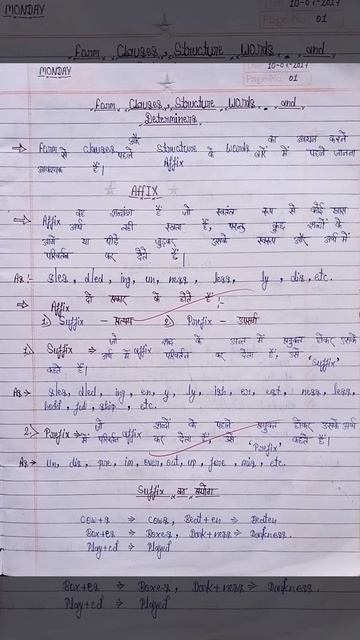 MONDAY
10-07-2017
Page No. 01
Form, Clauses, Structure Words, and
MONDAY
10-07-2017
Page No. 01
Form, Clauses, Structure Words, and
Determiners.
और का अध्ययन करने
⇒ Form Clauses Structure Words
से पहले के बारे में पहले जानना
आवश्यक है। Affix
AFFIX
वह शब्दांश है जो स्वतंत्र रूप से कोई खास
⇒ Affix अर्थ नहीं रखता है, परन्तु कुछ शब्दों के
आगे या पीछे जुड़कर उसके स्वरूप और अर्थ में
परिवर्तन कर देते हैं।
As:- s/es, d/ed, ing, un, ness, less, ly, dis, etc.
⇒ Affix दो प्रकार के होते हैं :-
1) Suffix - प्रत्यय 2) Prefix - उपसर्ग
1) Suffix ⇒ जो शब्द के अन्त में प्रयुक्त होकर उसके
अर्थ में परिवर्तन कर देता है, उसे 'Suffix'
कहते हैं।
As ⇒ s/es, d/ed, ing, en, y, ly, ish, er, est, ness, less,
hood, ful, ship, etc.
2.) Prefix ⇒ जो affix शब्दों के पहले प्रयुक्त होकर उसके अर्थ
में परिवर्तन कर देता है, उसे 'Prefix' कहते हैं।
As ⇒ un, dis, pre, im, over, out, up, fore, mis, etc.
Suffix का प्रयोग
Cow+s ⇒ Cows, Beat+en ⇒ Beaten
Box+es ⇒ Boxes, Dark+ness ⇒ Darkness.
Play+ed ⇒ Played
Box+es ⇒ Boxes, Dark+ness ⇒ Darkness.
Play+ed ⇒ Played